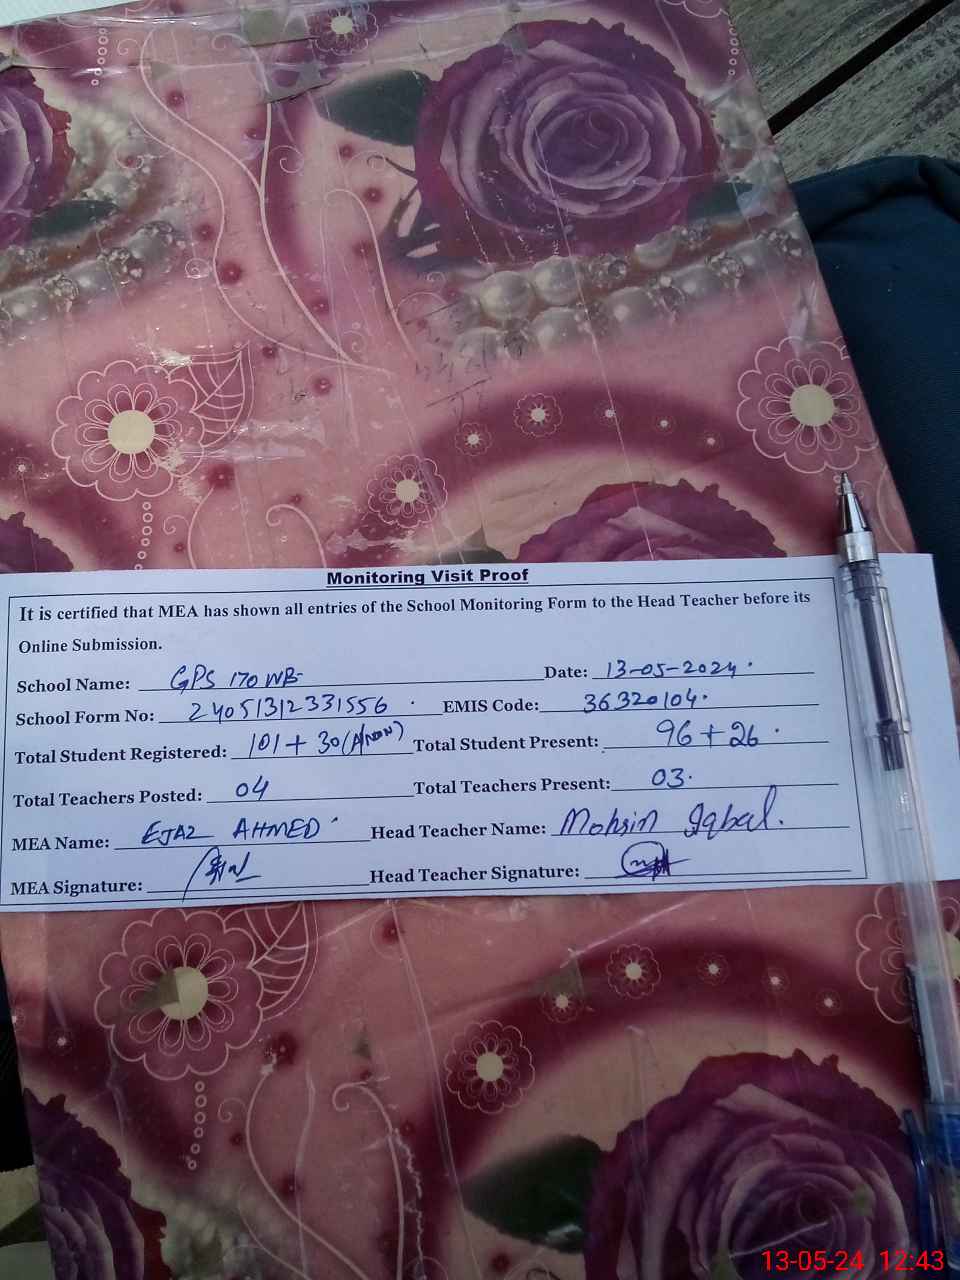 Monitoring Visit Proof
It is certified that MEA has shown all entries of the School Monitoring Form to the Head Teacher before its
Online Submission.
School Name: GPS 170 WB Date: 13-05-2024
School Form No: 24051312331556 EMIS Code: 36320104
Total Student Registered: 101 + 30 Total Student Present: 96 + 26
Total Teachers Posted: 04 Total Teachers Present: 03
MEA Name: EJAZ AHMED Head Teacher Name: Mohsin Iqbal.
MEA Signature: Head Teacher Signature:
13-05-24 12:43